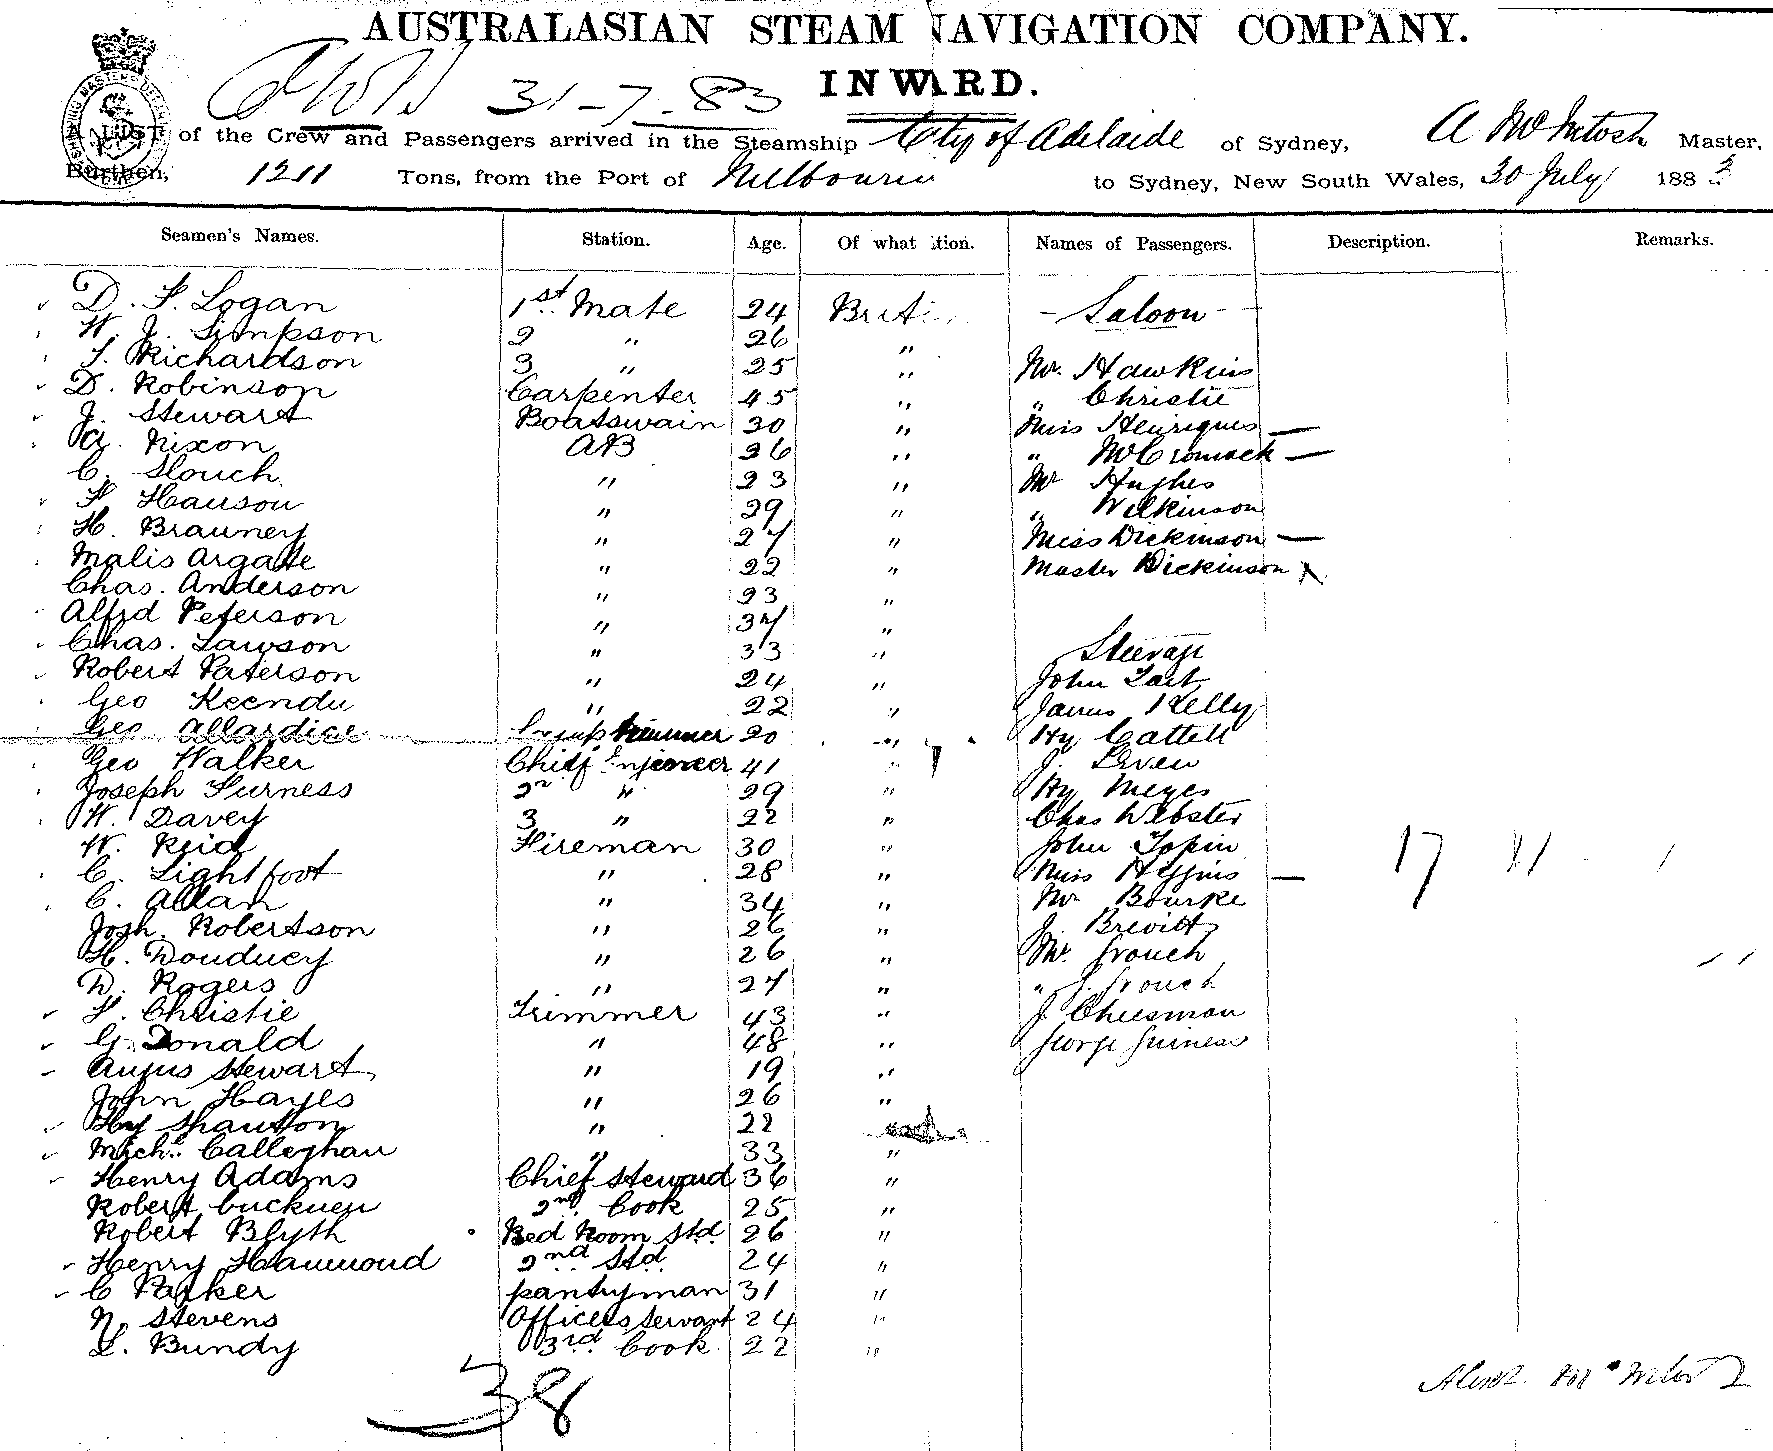 AUSTRALASIAN STEAM NAVIGATION COMPANY.
INWARD.
31-7-83
A LIST of the Crew and Passengers arrived in the Steamship City of Adelaide of Sydney, A McIntosh Master,
Burthen, 1211 Tons, from the Port of Melbourne to Sydney, New South Wales, 30 July 1883
Seamen's Names. Station. Age. Of what tion. Names of Passengers. Description. Remarks.
D. S. Logan 1st Mate 24 Briti - Saloon -
W. J. Simpson 2 " 26 "
T. Richardson 3 " 25 " Mr. Hawkins
D. Robinson Carpenter 45 " " Christie
J. Stewart Boatswain 30 " Miss Henriques
A. Nixon AB 26 " " McCromack
C. Slouch " 23 " Mr Hughes
F Hauson " 29 " " Wilkinson
H. Brauney " 27 " Miss Dickinson
Malis Argate " 22 " Master Dickinson
Chas. Anderson " 23 "
Alfrd Peterson " 37 "
Chas. Lawson " 33 " Steerage
Robert Paterson " 24 " John Tait
Geo Keendu " 22 " James Kelly
Geo Allardice Lamp trimmer 20 " Hy Cattell
Geo Walker Chief Engineer 41 " J. Leven
Joseph Furness 2nd " 29 " Hy Meyes
W. Davey 3 " 22 " Chas Webster
W. Reid Fireman 30 " John Topin 17
C. Lightfoot " 28 " Miss Higgins
C. Allan " 34 " Mr Bourke
Josh. Robertson " 26 " J. Brevitt
H. Douducy " 26 " Mr. Grouch
D. Rogers " 27 " " J. Grouch
F. Christie Trimmer 43 " J Cheesman
G. Donald " 48 " George Guiness
Angus Stewart " 19 "
John Hayes " 26 "
Hy Shauton " 22
Michl. Calleghan " 33 "
Henry Adams Chief Steward 36 "
Robert Cucknen 2nd Cook 25 "
Robert Blyth Bed Room Std. 26 "
Henry Hammond 2nd Std. 24 "
C Parker pantryman 31 "
N. Stevens Officers Servant 24 "
L. Bundy 3rd Cook 22 "
38